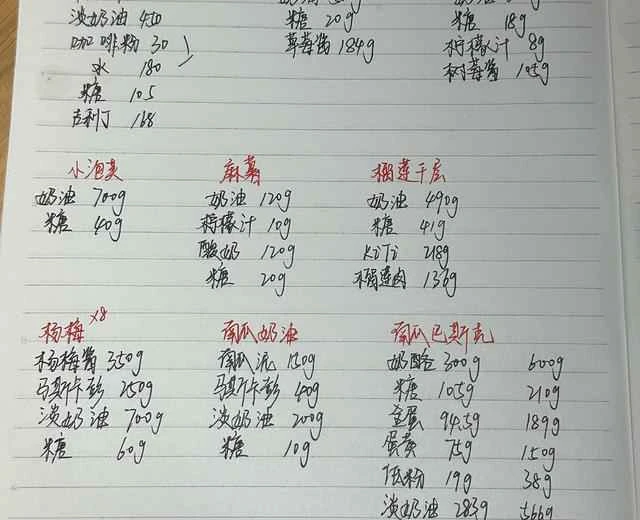 淡奶油 450
咖啡粉 30
水 180
糖 105
吉利丁 168
糖 20g
草莓酱 184g
糖 18g
柠檬汁 8g
树莓酱 105g
小泡芙
奶油 700g
糖 40g
麻薯
奶油 120g
柠檬汁 10g
酸奶 120g
糖 20g
榴莲千层
奶油 490g
糖 41g
KiTi 218g
榴莲肉 136g
杨梅 x8
杨梅酱 350g
马斯卡彭 250g
淡奶油 700g
糖 60g
南瓜奶油
南瓜泥 150g
马斯卡彭 40g
淡奶油 200g
糖 10g
南瓜巴斯克
奶酪 300g 600g
糖 105g 210g
全蛋 94.5g 189g
蛋黄 75g 150g
低粉 19g 38g
淡奶油 283g 566g